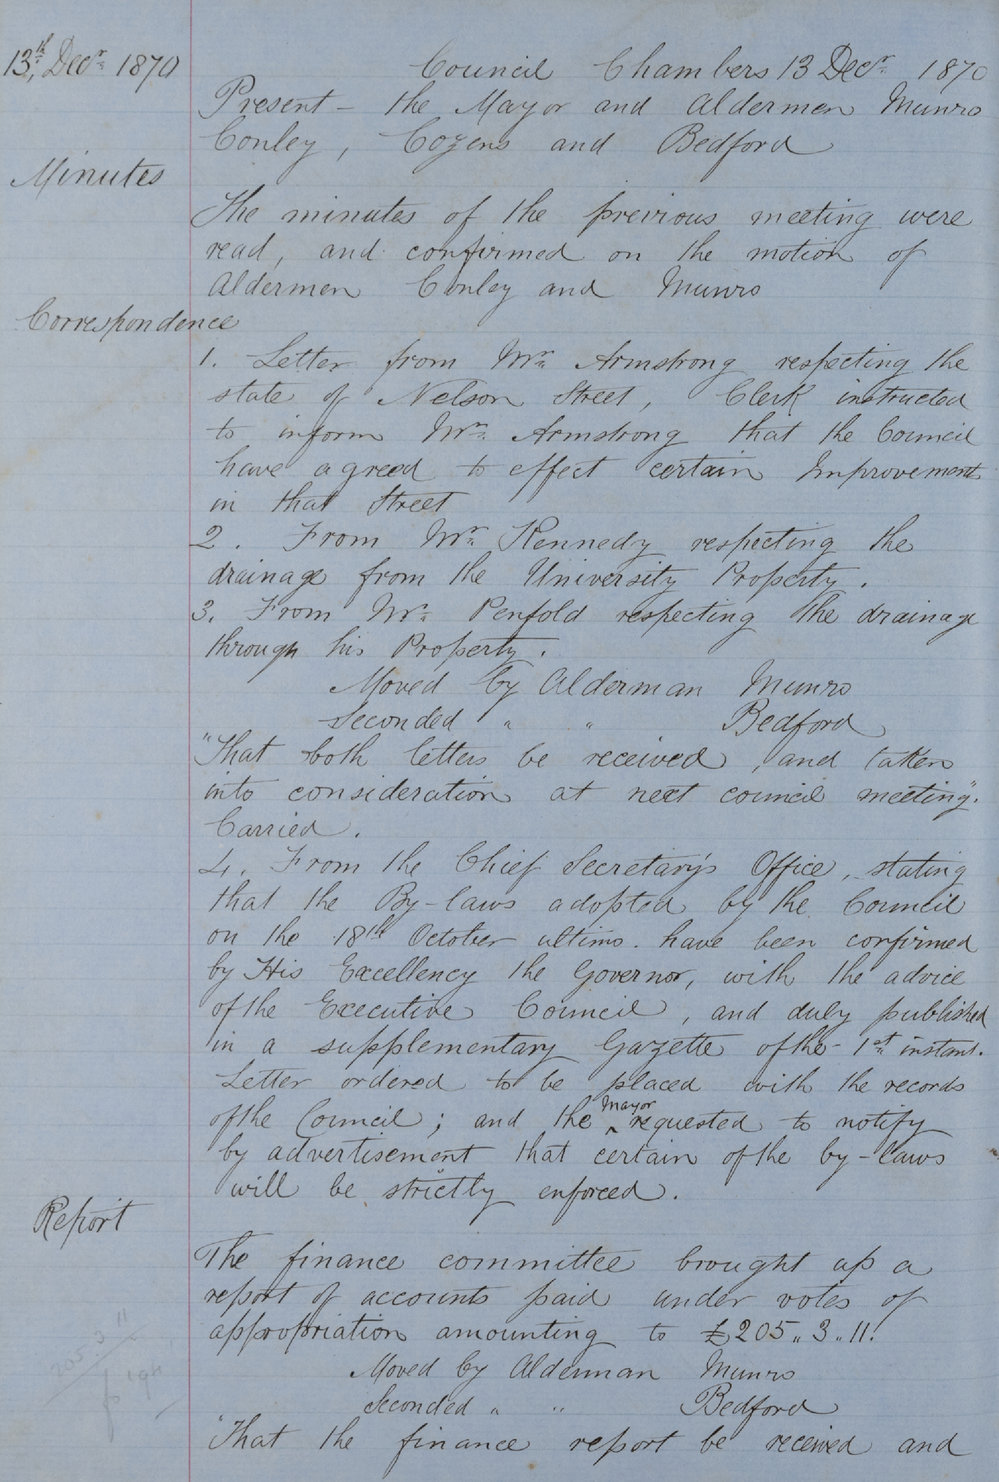 13th Decr 1870
Council Chambers 13 Decr 1870
Present – the Mayor and Aldermen Munro
Conley, Cozens and Bedford
Minutes
The minutes of the previous meeting were
read, and confirmed on the motion of
Aldermen Conley and Munro
Correspondence
1. Letter from Mr Armstrong respecting the
state of Nelson Street, Clerk instructed
to inform Mr Armstrong that the Council
have agreed to effect certain Improvements
in that Street
2. From Mr Kennedy respecting the
drainage from the University Property.
3. From Mr Penfold respecting the drainage
through his Property.
Moved by Alderman Munro
Seconded " " Bedford
"That both letters be received, and taken
into consideration at next council meeting".
Carried.
4. From the Chief Secretary's Office, stating
that the By-laws adopted by the Council
on the 18th October ultimo. have been confirmed
by His Excellency the Governor, with the advice
of the Executive Council, and duly published
in a supplementary Gazette of the 1st instant.
Letter ordered to be placed with the records
of the Council; and the Mayor requested to notify
by advertisement that certain of the by-laws
will be strictly enforced.
Report
The finance committee brought up a
report of accounts paid under votes of
appropriation amounting to £205.. 3.. 11.
205 3 11
Moved by Alderman Munro
Seconded " " Bedford
"That the finance report be received and